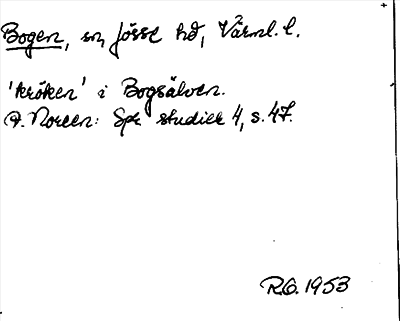 Bogen, sn, Jösse hd, Värml. l.
'kröken' i Bogsälven.
A. Noreen: Spr studier 4, s. 47.
R.O. 1953